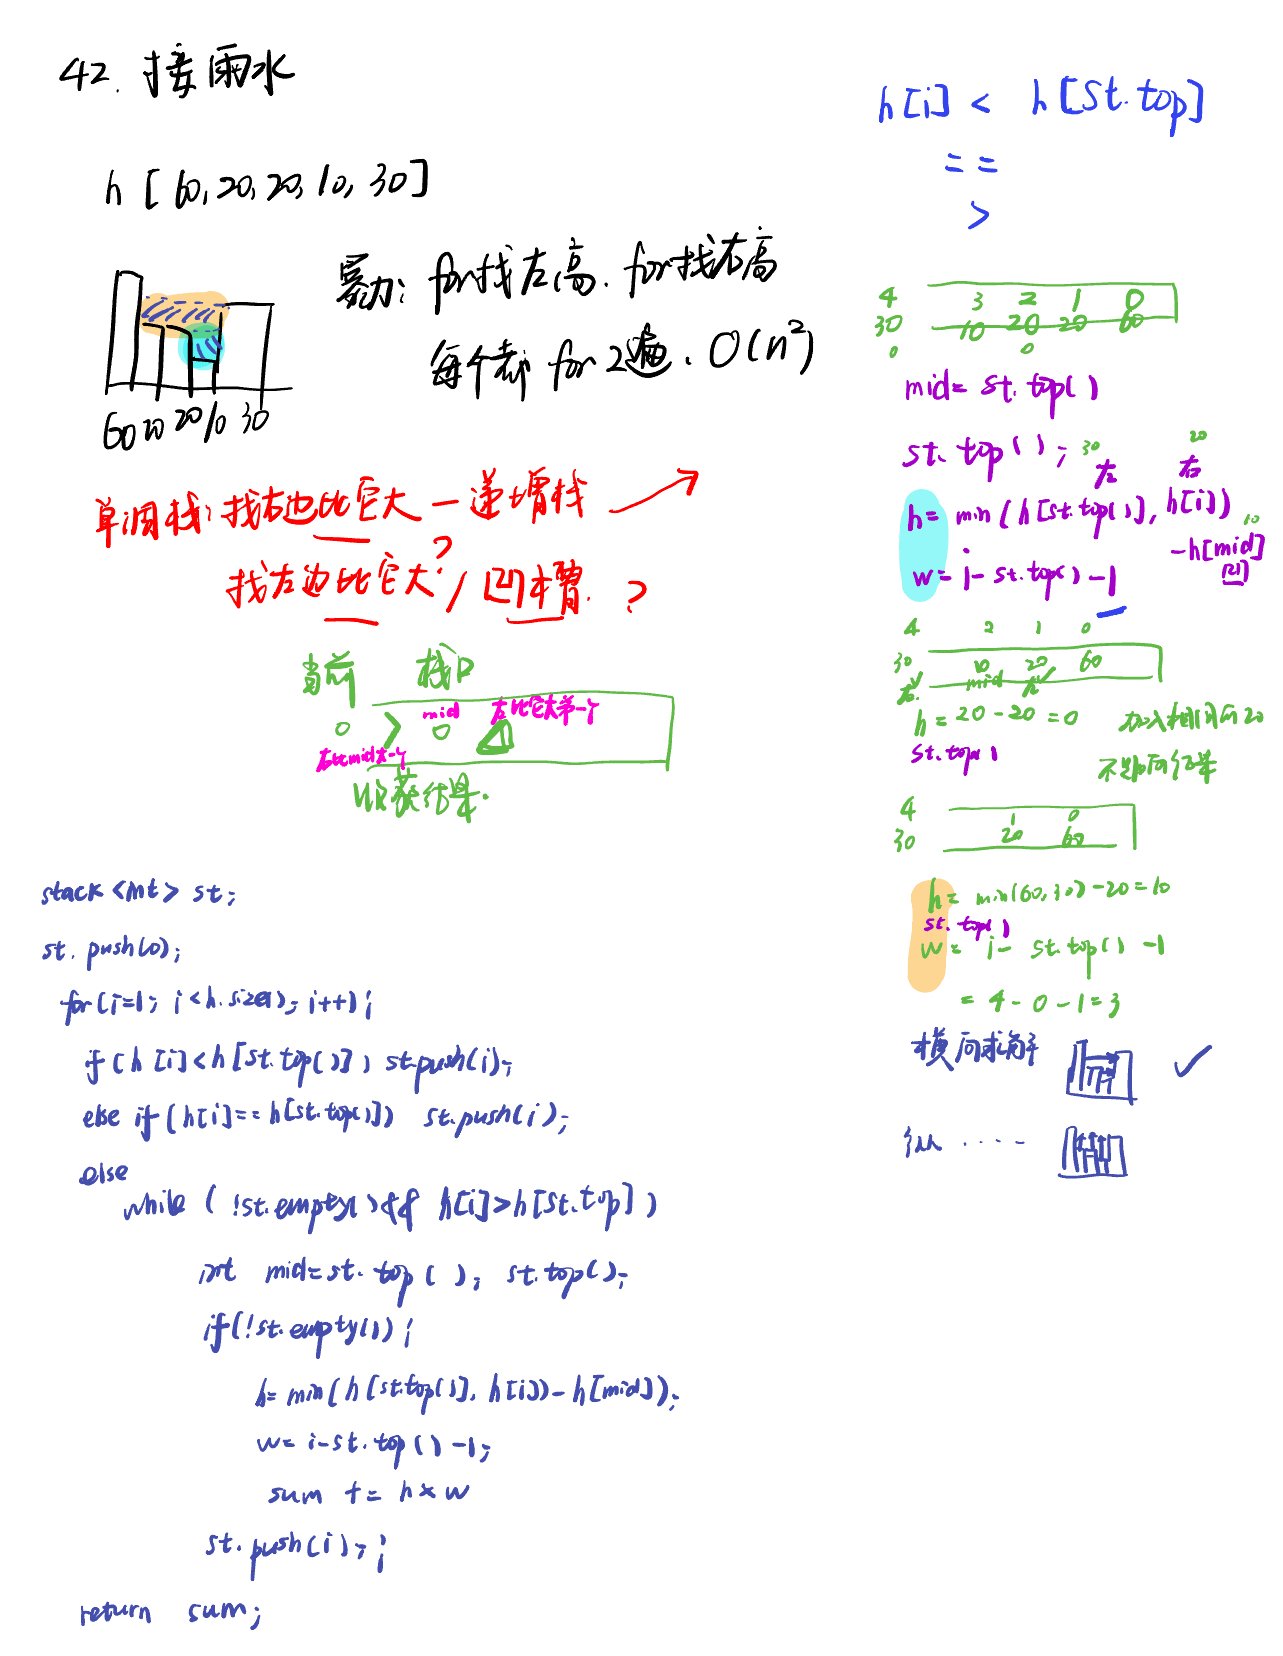 42. 接雨水
h [60, 20, 20, 10, 30]
暴力: for找左高. for找右高
每个都 for 2遍. O(n²)
60 20 20 10 30
单调栈: 找右边比它大 — 递增栈
找左边比它大? / 凹槽. ?
当前 栈口
0 > mid 0 左比它大第一个
右比mid大一个
收获结果.
stack <int> st;
st. push(0);
for(i=1; i<h.size(); i++){
if (h[i]<h[st.top()]) st.push(i);
else if (h[i]==h[st.top()]) st.push(i);
else
while ( !st.empty() && h[i]>h[st.top])
int mid=st.top(); st.top();
if(!st.empty()){
h=min(h[st.top()], h[i])-h[mid]);
w= i-st.top()-1;
sum += h×w
st.push(i); }
return sum;
h[i] < h[st.top]
==
>
4 3 2 1 0
30 10 20 20 60
0 0
mid= st.top()
st.top(); 30 左 20 右
h= min(h[st.top()], h[i])
10
-h[mid]
凹
w= i- st.top() -1
4 2 1 0
30 10 20 60
右 mid 左
h= 20-20=0 加入相同的20
st.top() 不影响结果
4 1 0
30 20 60
h= min(60,30)-20=10
st.top()
w= i- st.top() -1
= 4-0-1=3
横向求解 ✓
纵 ....